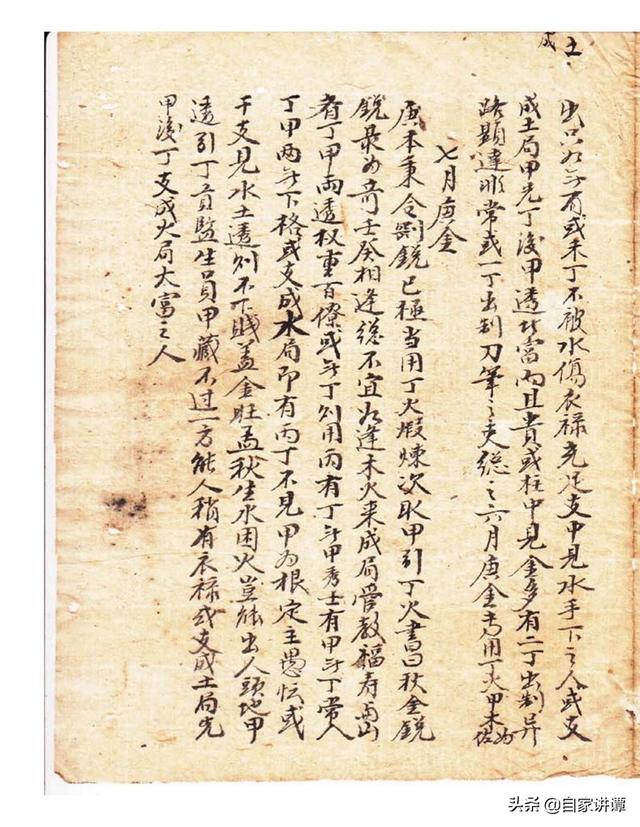 土
成
出只为无丙或未丁不被水傷衣禄充足支中見水手下之人或支
成土局甲先丁後甲透者富而且貴或柱中見金多有二丁出制异
路顯達非常或一丁出制刀筆之夫総之六月庚金専用丁火甲木為佐
七月庚金
庚本秉令剛鋭已極當用丁火煅煉次取甲引丁火書曰秋金鋭
鋭最为奇壬癸相逢総不宜为逢木火来成局管教福寿
者丁甲両透权重百僚或无丁则用丙有丁无甲秀士有甲无丁常人
丁甲两无下格或支成水局即有丙丁不見甲为根定主愚忲或
干支見水土透则不下賎盖金旺孟秋生水困火豈能出人頭地甲
透引丁貢監生員甲藏不过一方能人稍有衣禄或支成土局先
甲後丁支成火局大富之人
头条 @自家讲谭